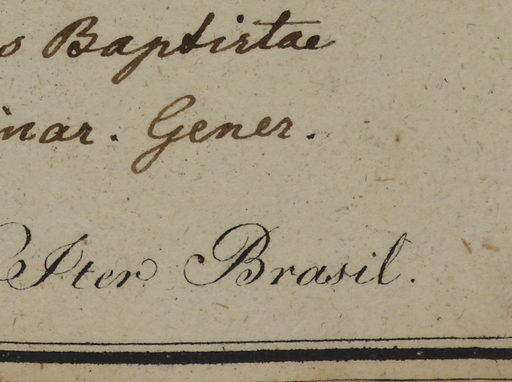 s Baptistae
inar. Gener.
Iter Brasil.